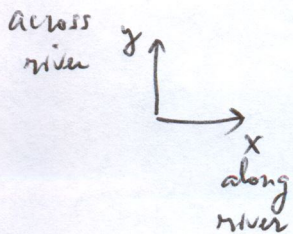 across
river
y
x
along
river